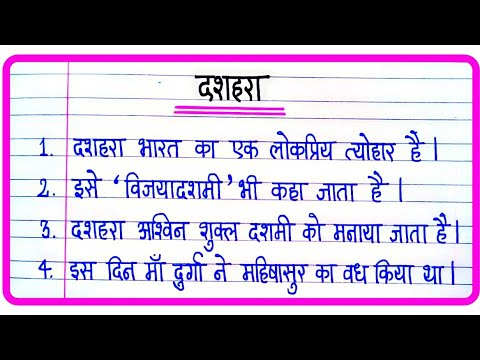 दशहरा
1. दशहरा भारत का एक लोकप्रिय त्योहार है।
2. इसे 'विजयादशमी' भी कहा जाता है।
3. दशहरा अश्विन शुक्ल दशमी को मनाया जाता है।
4. इस दिन माँ दुर्गा ने महिषासुर का वध किया था।